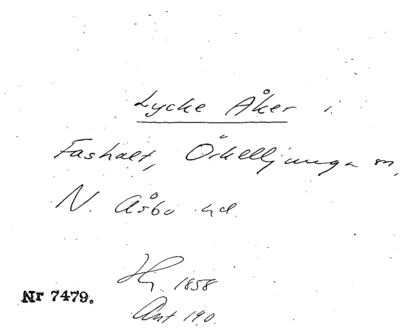 Lycke Åker i
Fashalt, Örkelljunga sn,
N. Åsbo hd.
Hy. 1858
Nr 7479.
Ant 190